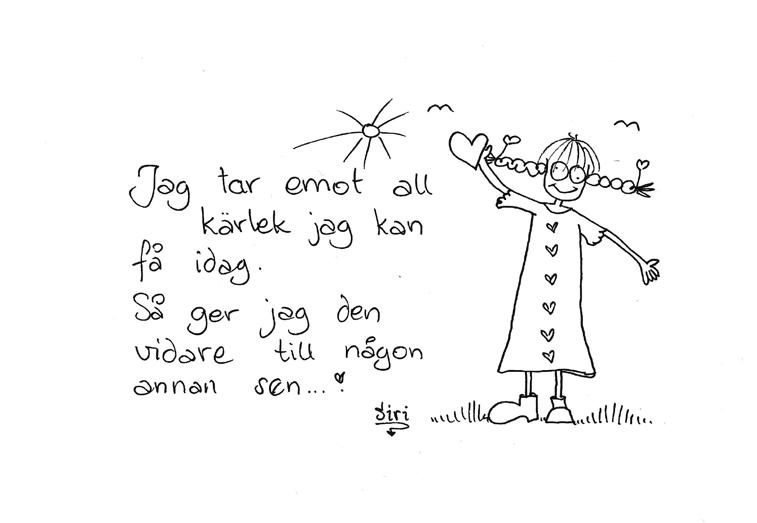 Jag tar emot all
kärlek jag kan
få idag.
Så ger jag den
vidare till någon
annan sen...
Siri